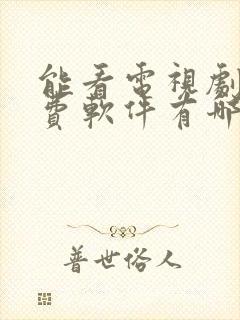 能看電視劇
費軟件有哪
普世俗人